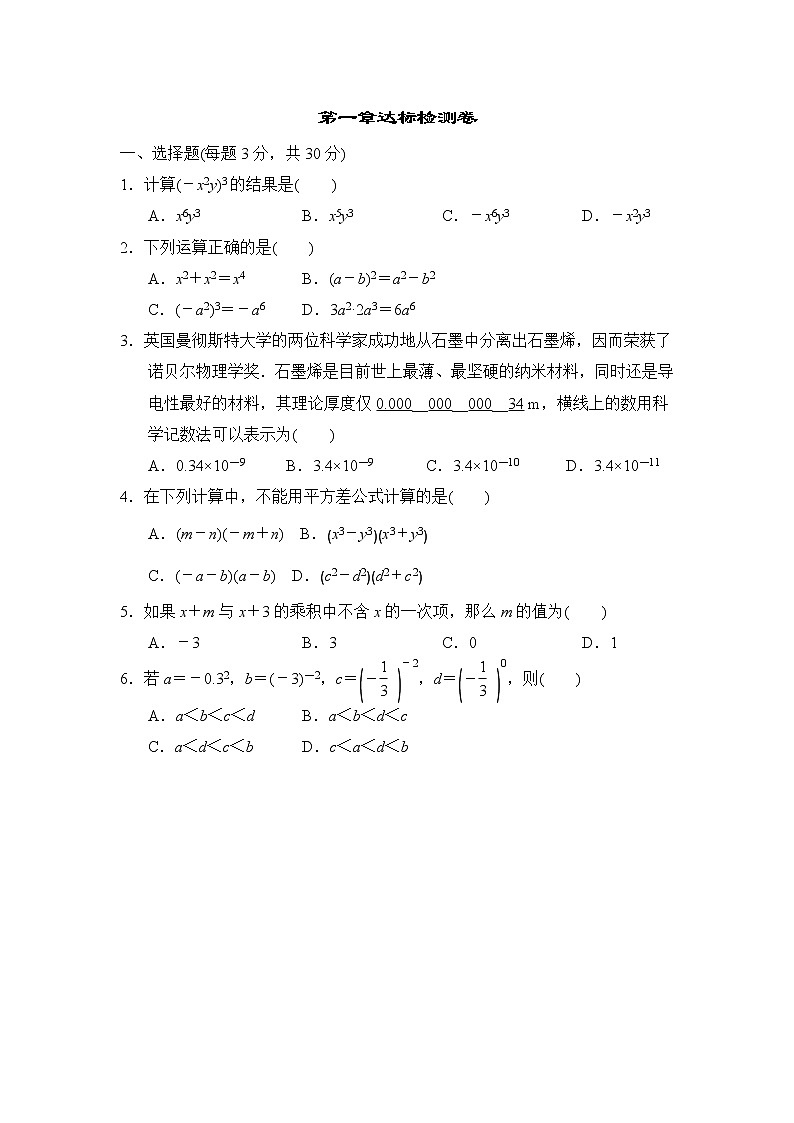 第一章达标检测卷
一、选择题(每题3分，共30分)
1．计算(－x²y)³的结果是(　　)
A．x⁶y³　B．x⁵y³　C．－x⁶y³　D．－x²y³
2．下列运算正确的是(　　)
A．x²＋x²＝x⁴　B．(a－b)²＝a²－b²
C．(－a²)³＝－a⁶　D．3a²·2a³＝6a⁶
3．英国曼彻斯特大学的两位科学家成功地从石墨中分离出石墨烯，因而荣获了
诺贝尔物理学奖．石墨烯是目前世上最薄、最坚硬的纳米材料，同时还是导
电性最好的材料，其理论厚度仅0.000__000__000__34 m，横线上的数用科
学记数法可以表示为(　　)
A．0.34×10⁻⁹　B．3.4×10⁻⁹　C．3.4×10⁻¹⁰　D．3.4×10⁻¹¹
4．在下列计算中，不能用平方差公式计算的是(　　)
A．(m－n)(－m＋n)　B．(x³－y³)(x³＋y³)
C．(－a－b)(a－b)　D．(c²－d²)(d²＋c²)
5．如果x＋m与x＋3的乘积中不含x的一次项，那么m的值为(　　)
A．－3　B．3　C．0　D．1
6．若a＝－0.3²，b＝(－3)⁻²，c＝(－1/3)⁻²，d＝(－1/3)⁰，则(　　)
A．a＜b＜c＜d　B．a＜b＜d＜c
C．a＜d＜c＜b　D．c＜a＜d＜b